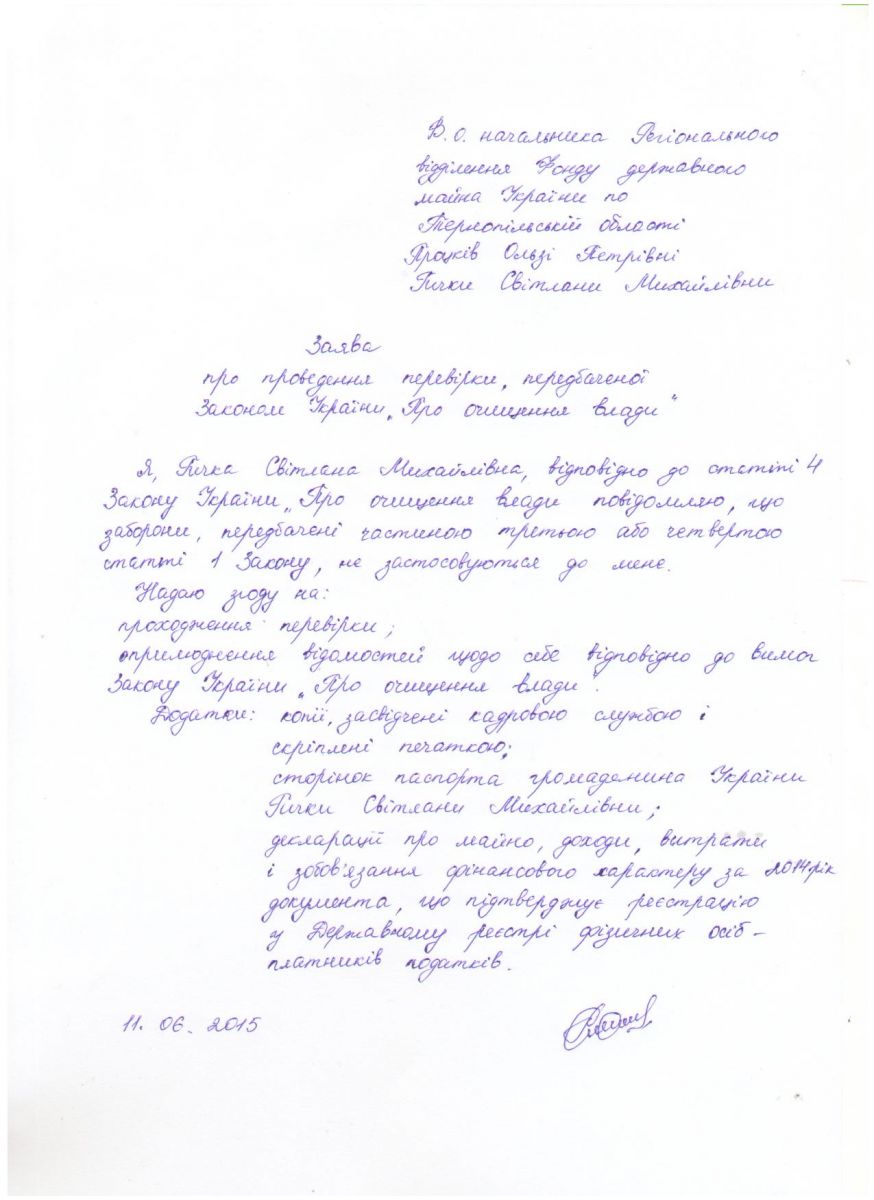 В.о. начальника Регіонального
відділення Фонду державного
майна України по
Тернопільській області
Процків Ользі Петрівні
Гички Світлани Михайлівни
Заява
про проведення перевірки, передбаченої
Законом України „Про очищення влади"
Я, Гичка Світлана Михайлівна, відповідно до статті 4
Закону України „Про очищення влади повідомляю, що
заборони, передбачені частиною третьою або четвертою
статті 1 Закону, не застосовуються до мене.
Надаю згоду на:
проходження перевірки;
оприлюднення відомостей щодо себе відповідно до вимог
Закону України „Про очищення влади".
Додатки: копії, засвідчені кадровою службою і
скріплені печаткою:
сторінок паспорта громадянина України
Гички Світлани Михайлівни;
декларації про майно, доходи, витрати
і зобов'язання фінансового характеру за 2014 рік
документа, що підтверджує реєстрацію
у Державному реєстрі фізичних осіб –
платників податків.
11. 06. 2015